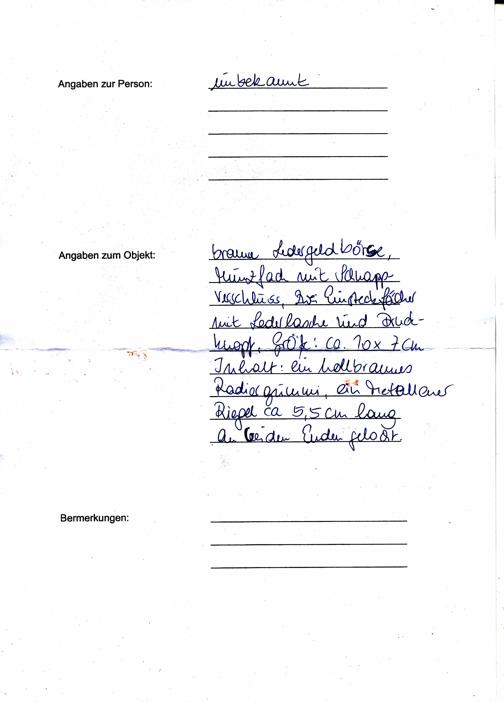 Angaben zur Person: unbekannt
Angaben zum Objekt: braune Ledergeldbörse,
Münzfach mit Schnapp-
verschluss, zwei Einsteckfächer
mit Lederlasche und Druck-
knopf. Größe: ca. 10 x 7 cm
Inhalt: ein hellbraunes
Radiergummi, ein metallener
Riegel ca 5,5 cm lang
an beiden Enden gelocht.
Bermerkungen: